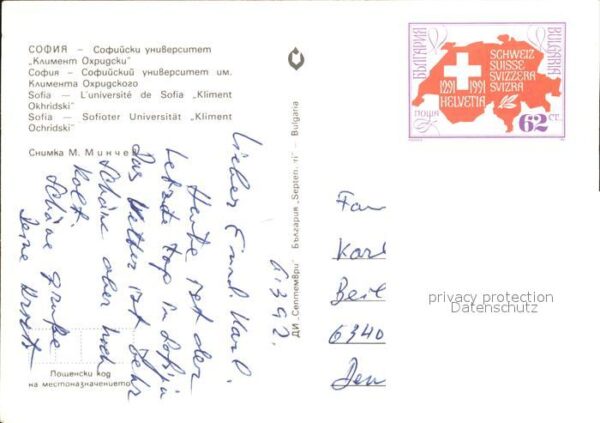 СОФИЯ – Софийски университет
„Климент Охридски“
София – Софийский университет им.
Климента Охридского
Sofia — L'université de Sofia „Kliment
Okhridski“
Sofia — Sofioter Universität „Kliment
Ochridski“
Снимка М. Минчев
ДИ „Септември“ България „Septemvri“ – Bulgaria
6.3.92.
Heute ist der
Letzte Tag in Sofia
Das Wetter ist sehr
Schöne aber noch
Kalt.
Schöne Grüße
Пощенски код
на местоназначението
БЪЛГАРИЯ
BULGARIA
SCHWEIZ
SUISSE
SVIZZERA
SVIZRA
1291 1991
HELVETIA
ПОЩА
62 СТ.
Karl
6340
privacy protection
Datenschutz